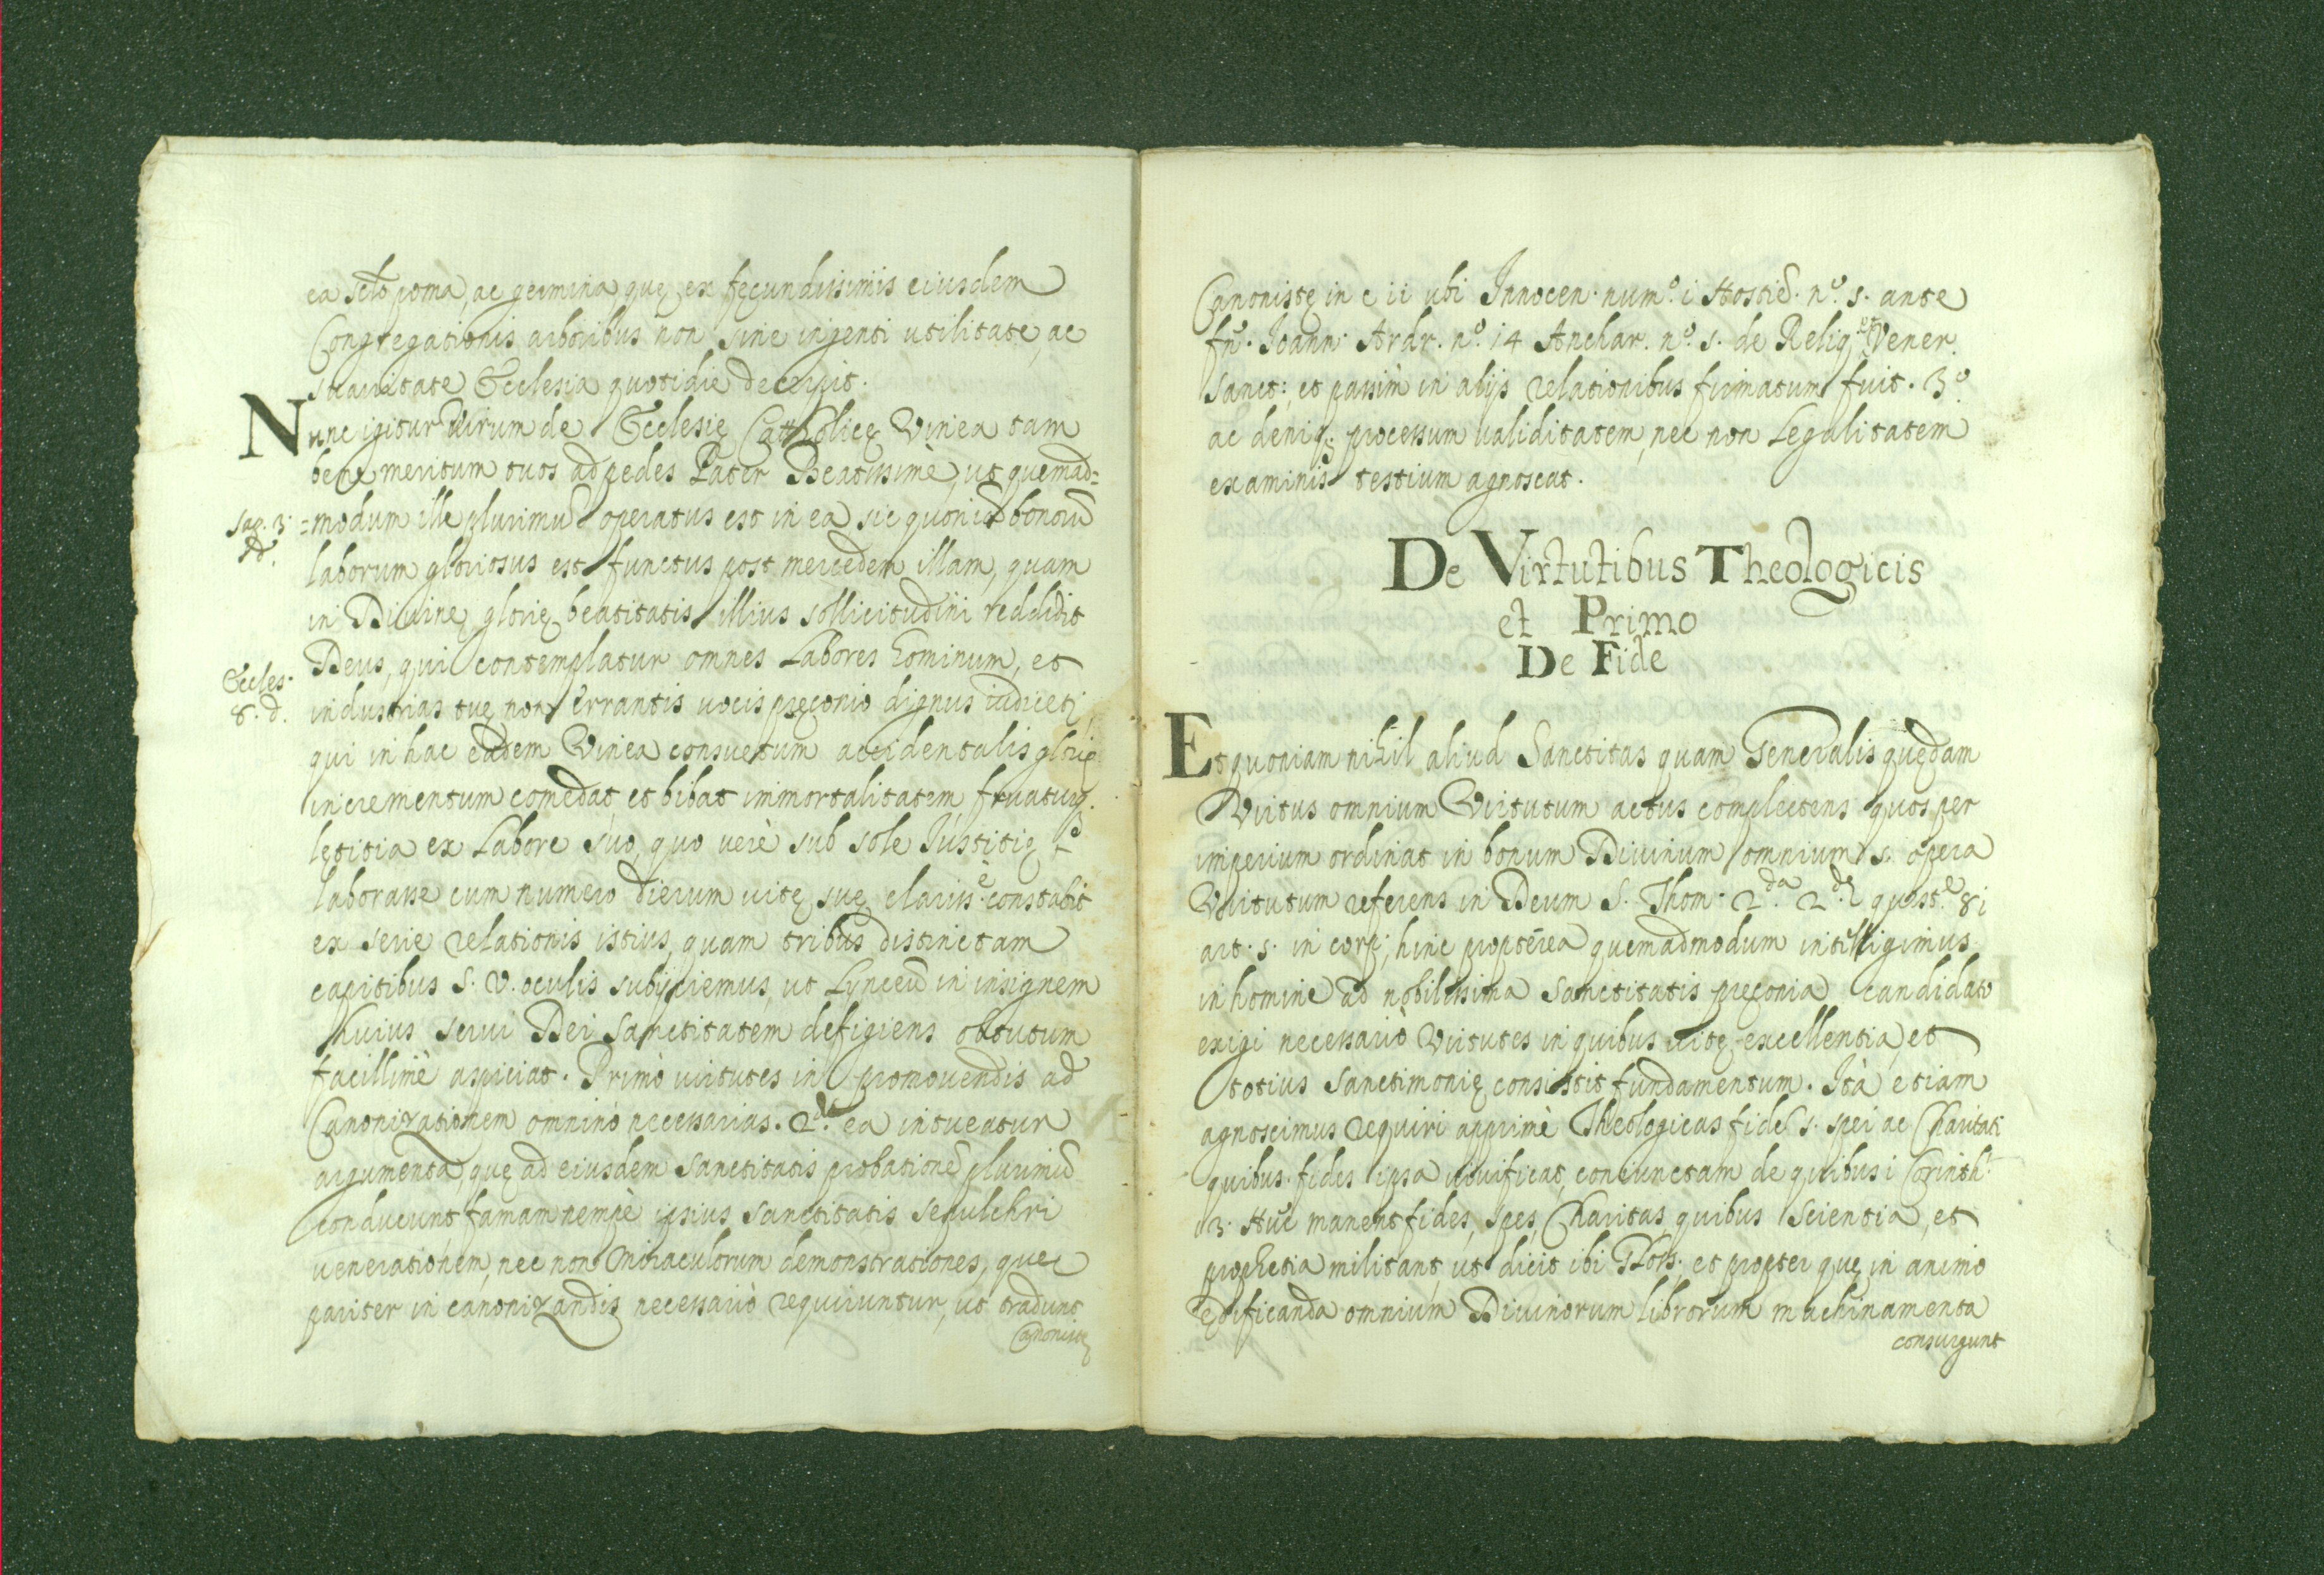 ea sctõ poma, ac germina quę ex fęcundissimis eiusdem
Congregationis arboribus non sine ingenti utilitate, ac
suauitate Ecclesia quotidie decerpit.
Nunc igitur Virum de Ecclesię Catholicę Vinea tam
bene meritum tuos ad pedes Pater Beatissimè, ut quemad=
Sap. 3.
d.
=modum ille plurimũ operatus est in ea sic quoniã bonorũ
laborum gloriosus est functus post mercedem illam, quam
in Diuinę glorię beatitatis illius sollicitudini reddidit
Deus, qui contemplatur omnes Labores hominum, et
Eccles.
8. d.
industrias tuę non errantis uocis pręconio dignus
qui in hac eadem Vinea consuetum accidentalis glorię
incrementum comedat, et bibat immortalitatem fruaturq;
lętitia ex Labore suo, quo uerè sub sole Iustitię
laborasse cum numero dierum uitę suę clariss.è constabit
ex serie relationis istius, quam tribus distinctam
capitibus S. V. oculis subijciemus, ut Lynceũ in insignem
huius serui Dei Sanctitatem defigiens obtutum
facillimè aspiciat. Primò uirtutes in promouendis ad
Canonizationem omninò necessarias. 2.do ea intueatur
argumenta, quę ad eiusdem Sanctitatis probationẽ plurimũ
conducunt, famam nempè ipsius Sanctitatis Sepulchri
uenerationem, nec non Miraculorum demonstrationes, quę
pariter in canonizandis necessariò requiruntur, ut tradunt
Canonistę
Canonistę in c ii ubi Innocen. num.o i Hostiẽ. n.o s. ante
fñ. Ioann. Andr. n.o 14 Anchar. n.o s. de Reliq. et Vener.
Sanct: et passim in alijs relationibus firmatum fuit. 3.o
ac deniq; processum ualiditatem, nec non Legalitatem
examinis testium agnoscat.
De Virtutibus Theologicis
et Primo
De Fide
Et quoniam nihil aliud Sanctitas quam Generalis quędam
Virtus omnium Virtutum actus complectens quos per
imperium ordinat in bonum Diuinum omnium s. opera
Virtutum referens in Deum S. Thom. 2.da 2.dę quęst.e 8i
art. s. in corp; hinc proptèrea quemadmodum intelligimus
in homine ad nobilissima Sanctitatis pręconia candidato
exigi necessariò Virtutes in quibus uitę excellentia, et
totius Sanctimonię consistit fundamentum. Ità etiam
agnoscimus requiri apprimè Theologicas fidei s. spei ac Charitati
quibus fides ipsa uiuificat, coniunctam de quibus i Corinth.
13. Nũc manent fides, spes, Charitas quibus Scientia, et
prophetia militant, ut dicit ibi et propter quę in animo
ędificanda omnium Diuinorum librorum machinamenta
consurgunt